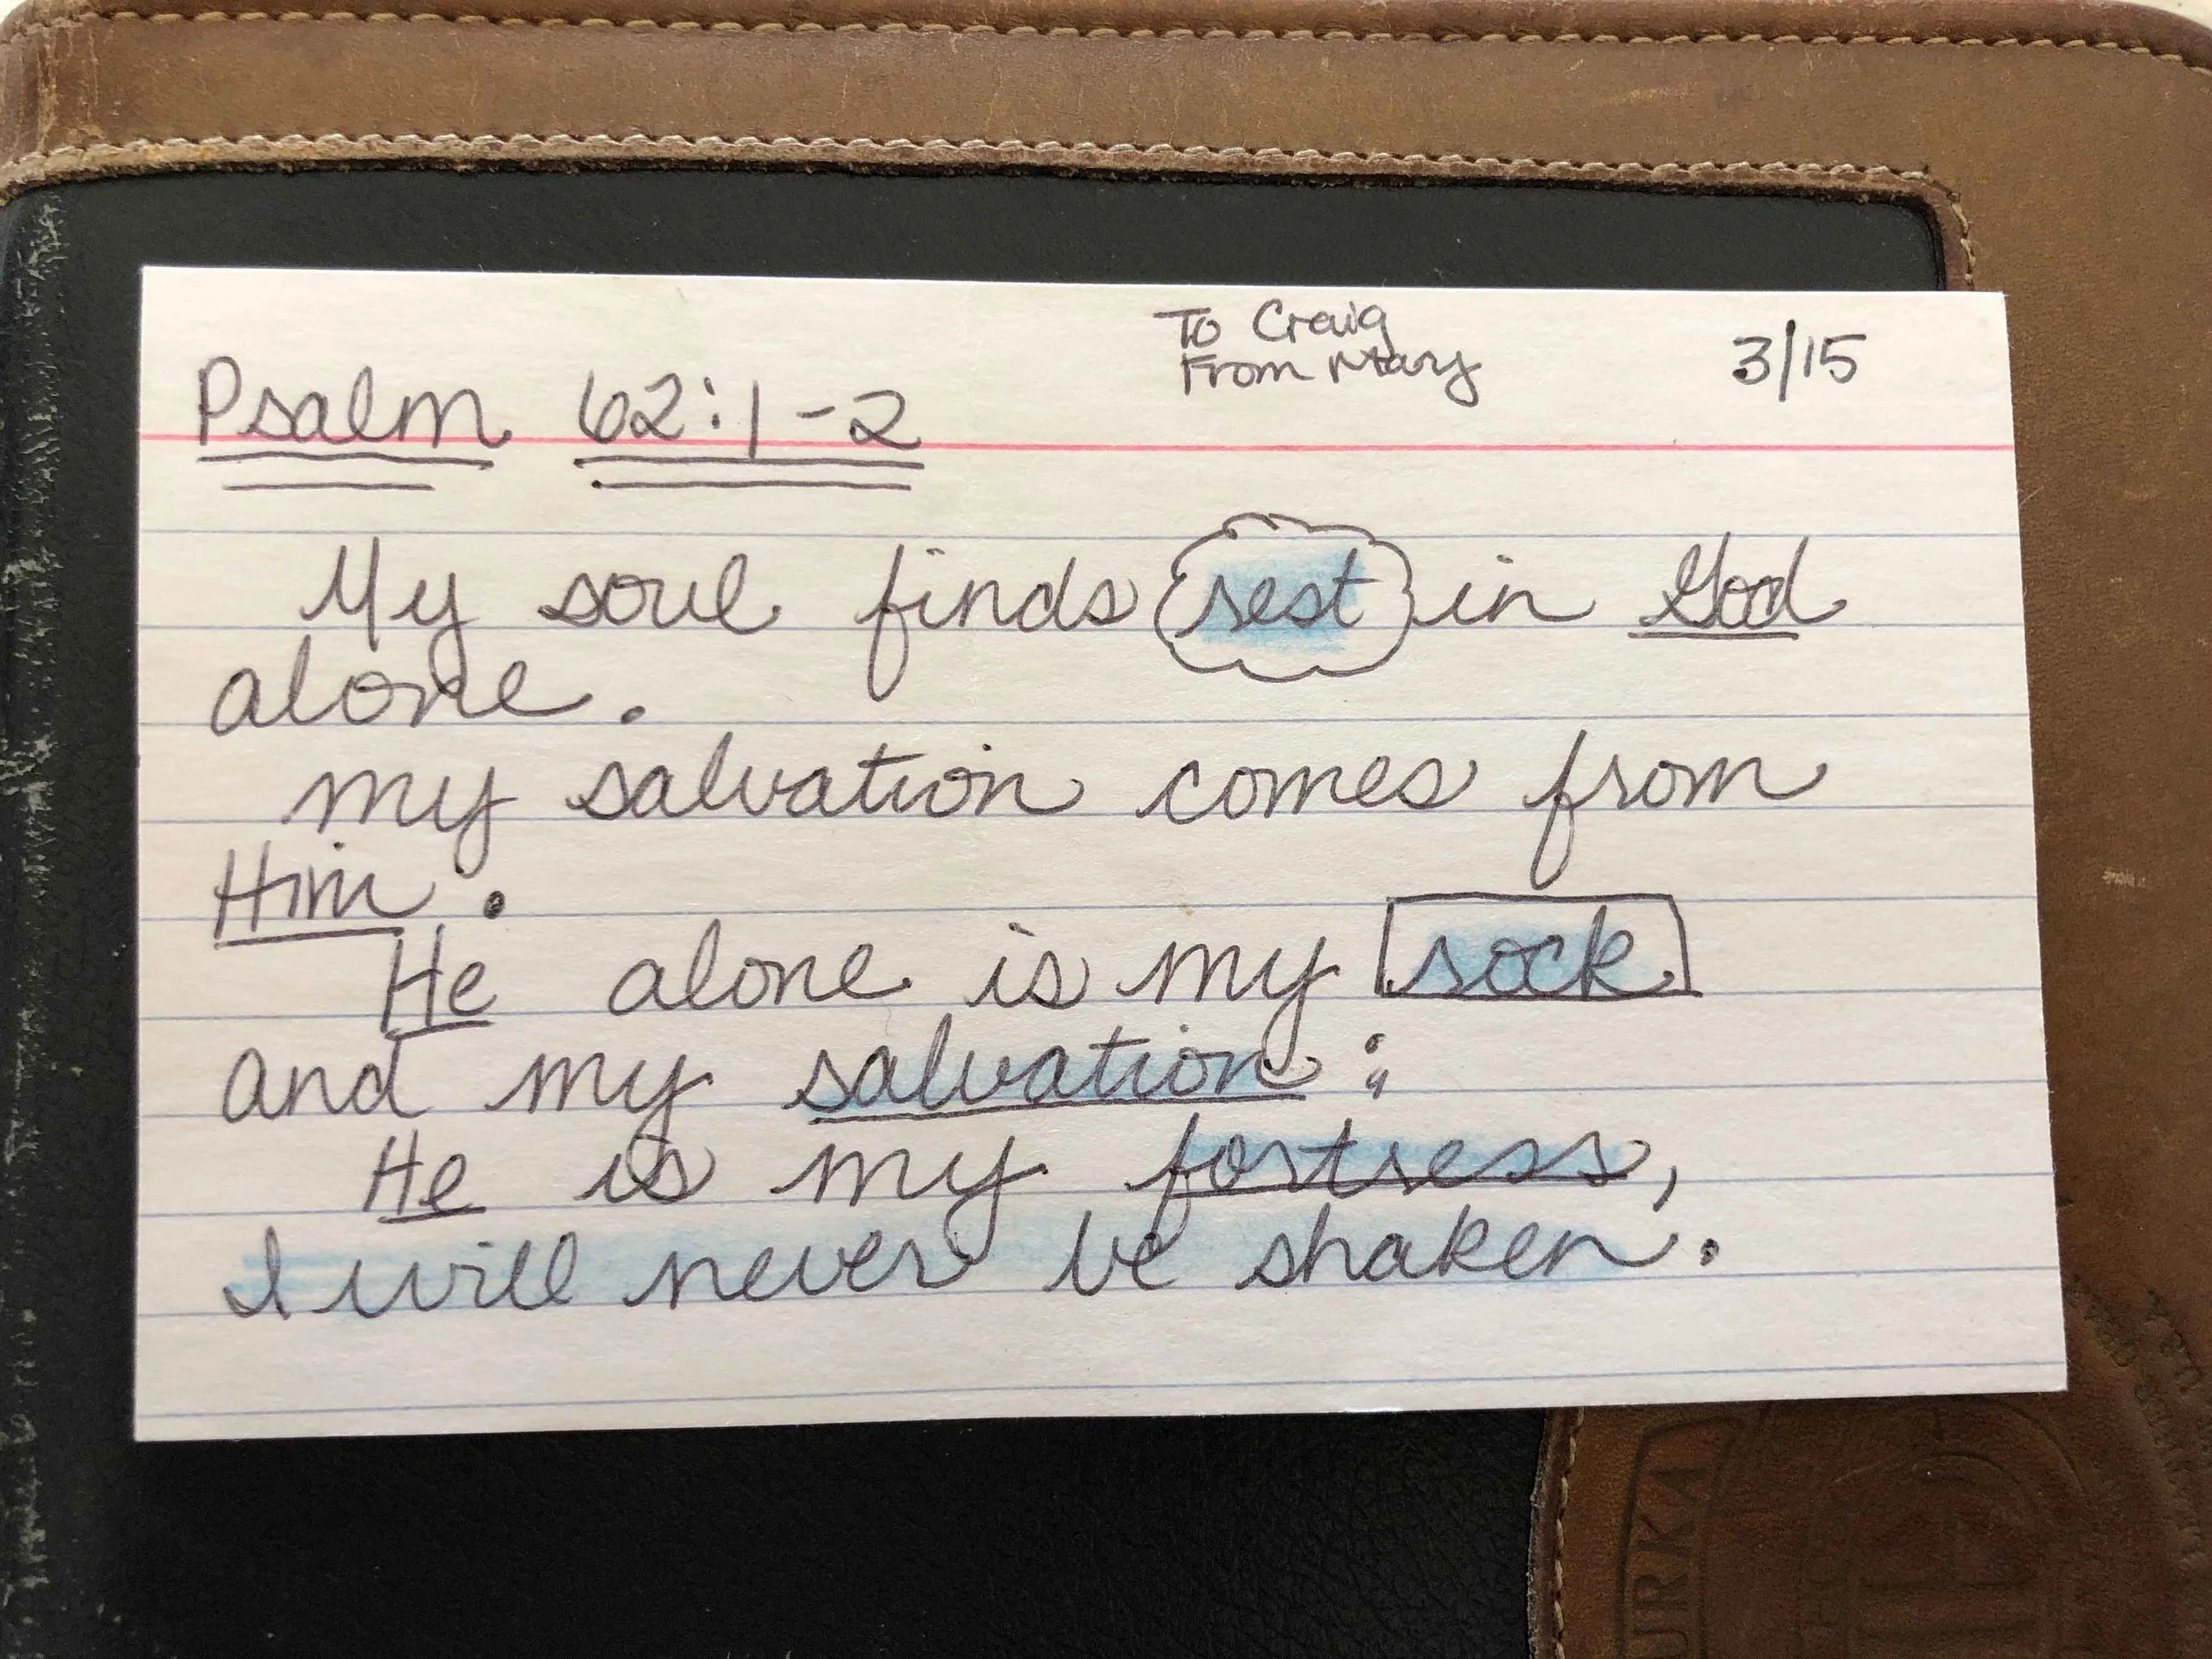 To Craig
From Mary
3/15
Psalm 62:1-2
My soul finds rest in God
alone.
my salvation comes from
Him.
He alone is my rock
and my salvation;
He is my fortress,
I will never be shaken.
URKA